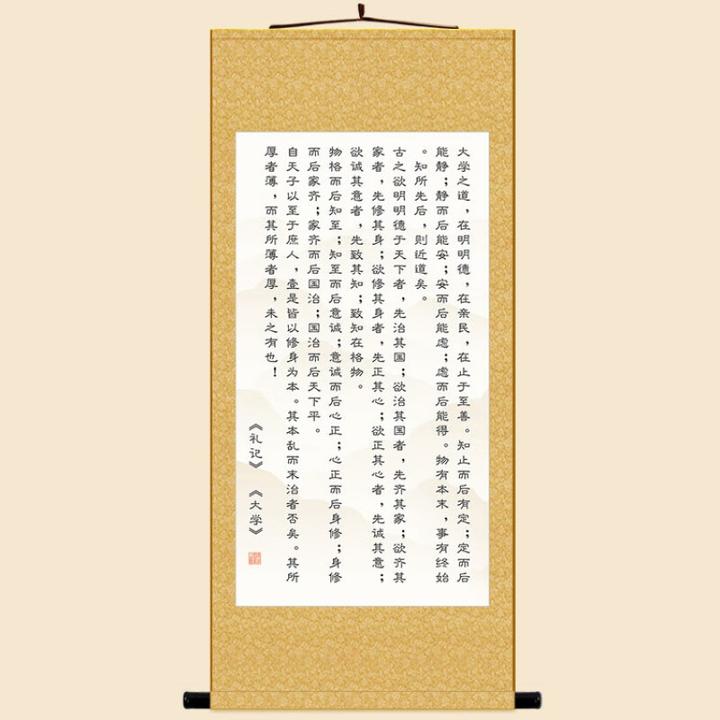 大学之道，在明明德，在亲民，在止于至善。知止而后有定；定而后
能静；静而后能安；安而后能虑；虑而后能得。物有本末，事有终始
。知所先后，则近道矣。
古之欲明明德于天下者，先治其国；欲治其国者，先齐其家；欲齐其
家者，先修其身；欲修其身者，先正其心；欲正其心者，先诚其意；
欲诚其意者，先致其知；致知在格物。
物格而后知至；知至而后意诚；意诚而后心正；心正而后身修；身修
而后家齐；家齐而后国治；国治而后天下平。
自天子以至于庶人，壹是皆以修身为本。其本乱而末治者否矣。其所
厚者薄，而其所薄者厚，未之有也！
《礼记》《大学》